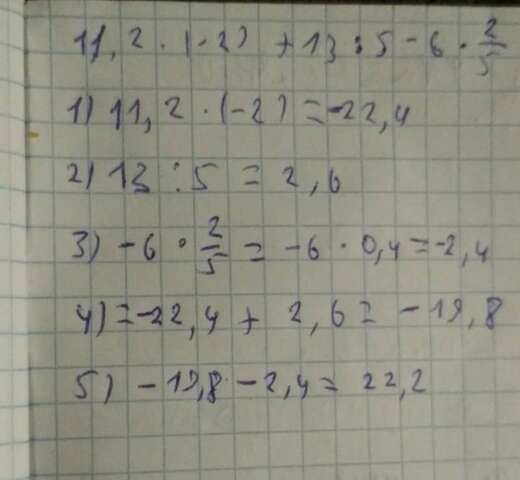 11,2 · (-2) + 13 : 5 - 6 · 2/5
1) 11,2 · (-2) = -22,4
2) 13 : 5 = 2,6
3) -6 · 2/5 = -6 · 0,4 = -2,4
4) = -22,4 + 2,6 = -19,8
5) -19,8 - 2,4 = 22,2